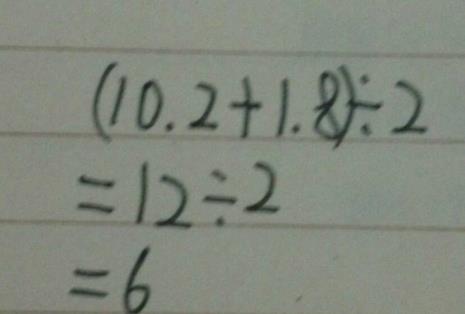 (10.2+1.8)÷2
=12÷2
=6